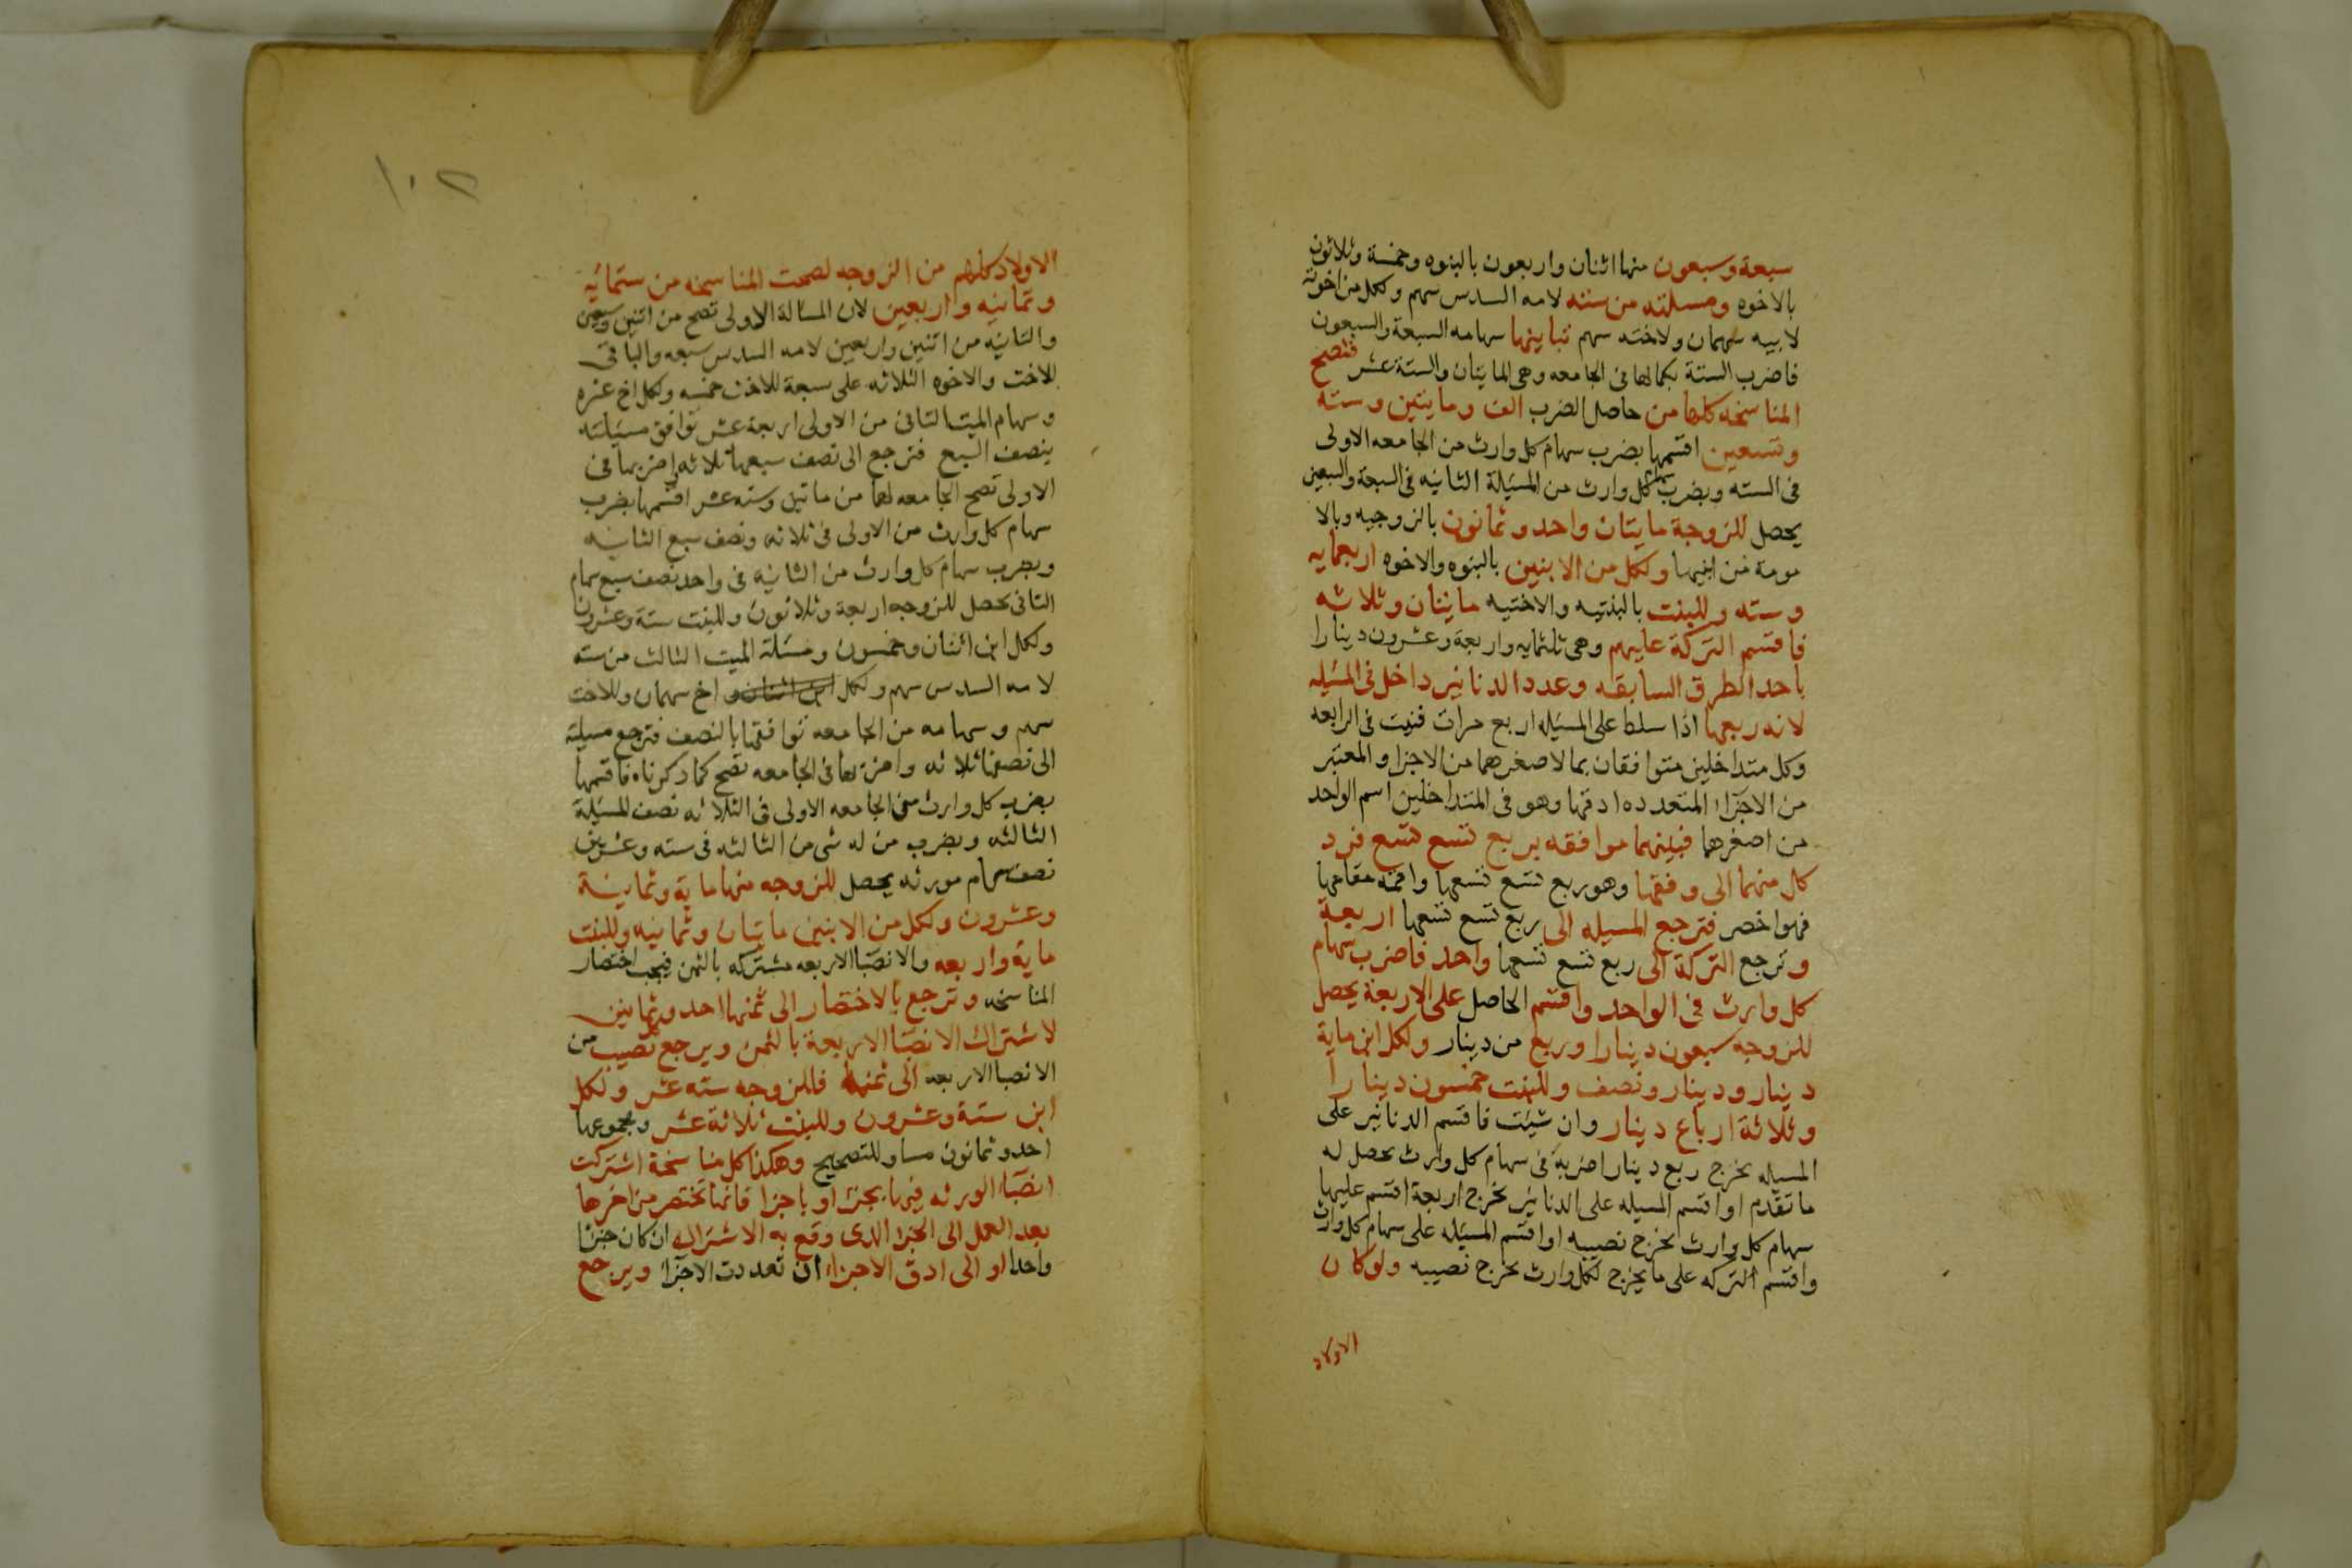 سبعة وسبعون منها اثنان واربعون بالبنوه وخمسة وثلاثون
بالاخوه ومسلته من سته لامه السدس سهم ولكل من اخوته
لابيه سهمان ولاخته سهم تباينها سهامه السبعة والسبعون
فاضرب الستة بكمالها فى الجامعه وهى المايتان والستة عشر فتصح
المناسخه كلها من حاصل الضرب الف ومايتين وسته
وتسعين اقتسمها بضرب سهام كل وارث من الجامعه الاولى
فى السته وبضرب سهام كل وارث من المسيلة الثانيه فى السبعة والسبعين
يحصل للزوجة مايتان واحد وثمانون بالزوجيه وبالا
مومة من ابنيها ولكل من الابنين بالبنوه والاخوه اربعمايه
وسته وللبنت بالبنتيه والاختيه مايتان وثلاثه
فاقتسم التركة عليهم وهى ثلثمايه واربعة وعشرون دينارا
باحد الطرق السابقه وعدد الدنانير داخل فى المسيله
لانه ربعها اذا سلط على المسيله اربع مرات فنيت فى الرابعه
وكل متداخلين متوافقان بما لاصغرهما من الاجزا والمعتبر
من الاجزاء المتعدده ادقها وهو فى المتداخلين اسم الواحد
من اصغرهما فبينهما موافقه بربع تسع تسع فرد
كل منهما الى وفقها وهو ربع تسع تسعها واقمه مقامها
فهو اخصر فترجع المسيله الى ربع تسع تسعها اربعة
وترجع التركة الى ربع تسع تسعها واحد فاضرب سهام
كل وارث فى الواحد واقتسم الحاصل على الاربعة يحصل
للزوجه سبعون دينارا وربع من دينار ولكل ابن ماية
دينار ودينار ونصف وللبنت خمسون دينارا
وثلاثة ارباع دينار وان شيئت فاقتسم الدنانير على
المسيله يخرج ربع دينار اضربه فى سهام كل وارث يحصل له
ما تقدم او اقتسم المسيله على الدنانير يخرج اربعة اقتسم عليها
سهام كل وارث يخرج نصيبه او اقتسم المسيله على سهام كل وارث
واقتسم التركه على ما يخرج لكل وارث يخرج نصيبه ولوكان
الاولاد
١٠٢
الاولاد كلهم من الزوجه لصحت المناسخه من ستمائيه
وثمانيه واربعين لان المسالة الاولى تصح من اثنين وسبعين
والثانيه من اثنين واربعين لامه السدس سبعه والباقى
للاخت والاخوه الثلاثه على سبعة للاخت خمسه ولكل اخ عشره
وسهام الميت الثانى من الاولى اربعة عشر توافق مسيلته
بنصف السبع فترجع الى نصف سبعها ثلاثه اضربها فى
الاولى تصح الجامعه لهما من مائتين وسته عشر اقتسمها بضرب
سهام كل وارث من الاولى فى ثلاثه ونصف سبع الثانيه
وبضرب سهام كل وارث من الثانيه فى واحد نصف سبع سهام
الثانى يحصل للزوجه اربعة وثلاثون وللبنت ستة وعشرون
ولكل ابن اثنان وخمسون ومسئلة الميت الثالث من سته
لامه السدس سهم ولكل ابن اثنان و اخ سهمان وللاخت
سهم وسهامه من الجامعه توافقها بالنصف فترجع مسيلته
الى نصفها ثلاثه واضربها فى الجامعه تصح كما ذكرناه فاقتسمها
بضرب كل وارث من الجامعه الاولى فى الثلاثه نصف المسيلة
الثالثه وبضرب من له شى من الثالثه فى سته وعشرين
نصف سهام مورثه يحصل للزوجه منها ماية وثمانية
وعشرون ولكل من الابنين مايتان وثمانيه وللبنت
ماية واربعه والانصبا الاربعه مشتركه بالثمن فيجب اختصار
المناسخه وترجع بالاختصار الى ثمنها احد وثمانين
لاشتراك الانصبا الاربعة بالثمن ويرجع كل نصيب من
الانصبا الاربعه الى ثمنه فللزوجه سته عشر ولكل
ابن ستة وعشرون وللبنت ثلاثة عشر ومجموعها
احد وثمانون مساو للتصحيح وهكذا كل مناسخة اشتركت
انصباء الورثه فيها بجزء او باجزا فانها تختصر من اخرها
بعد العمل الى الجزا الذى وقع به الاشتراك ان كان جزئا
واحدا او الى ادق الاجزاء ان تعددت الاجزاء ويرجع